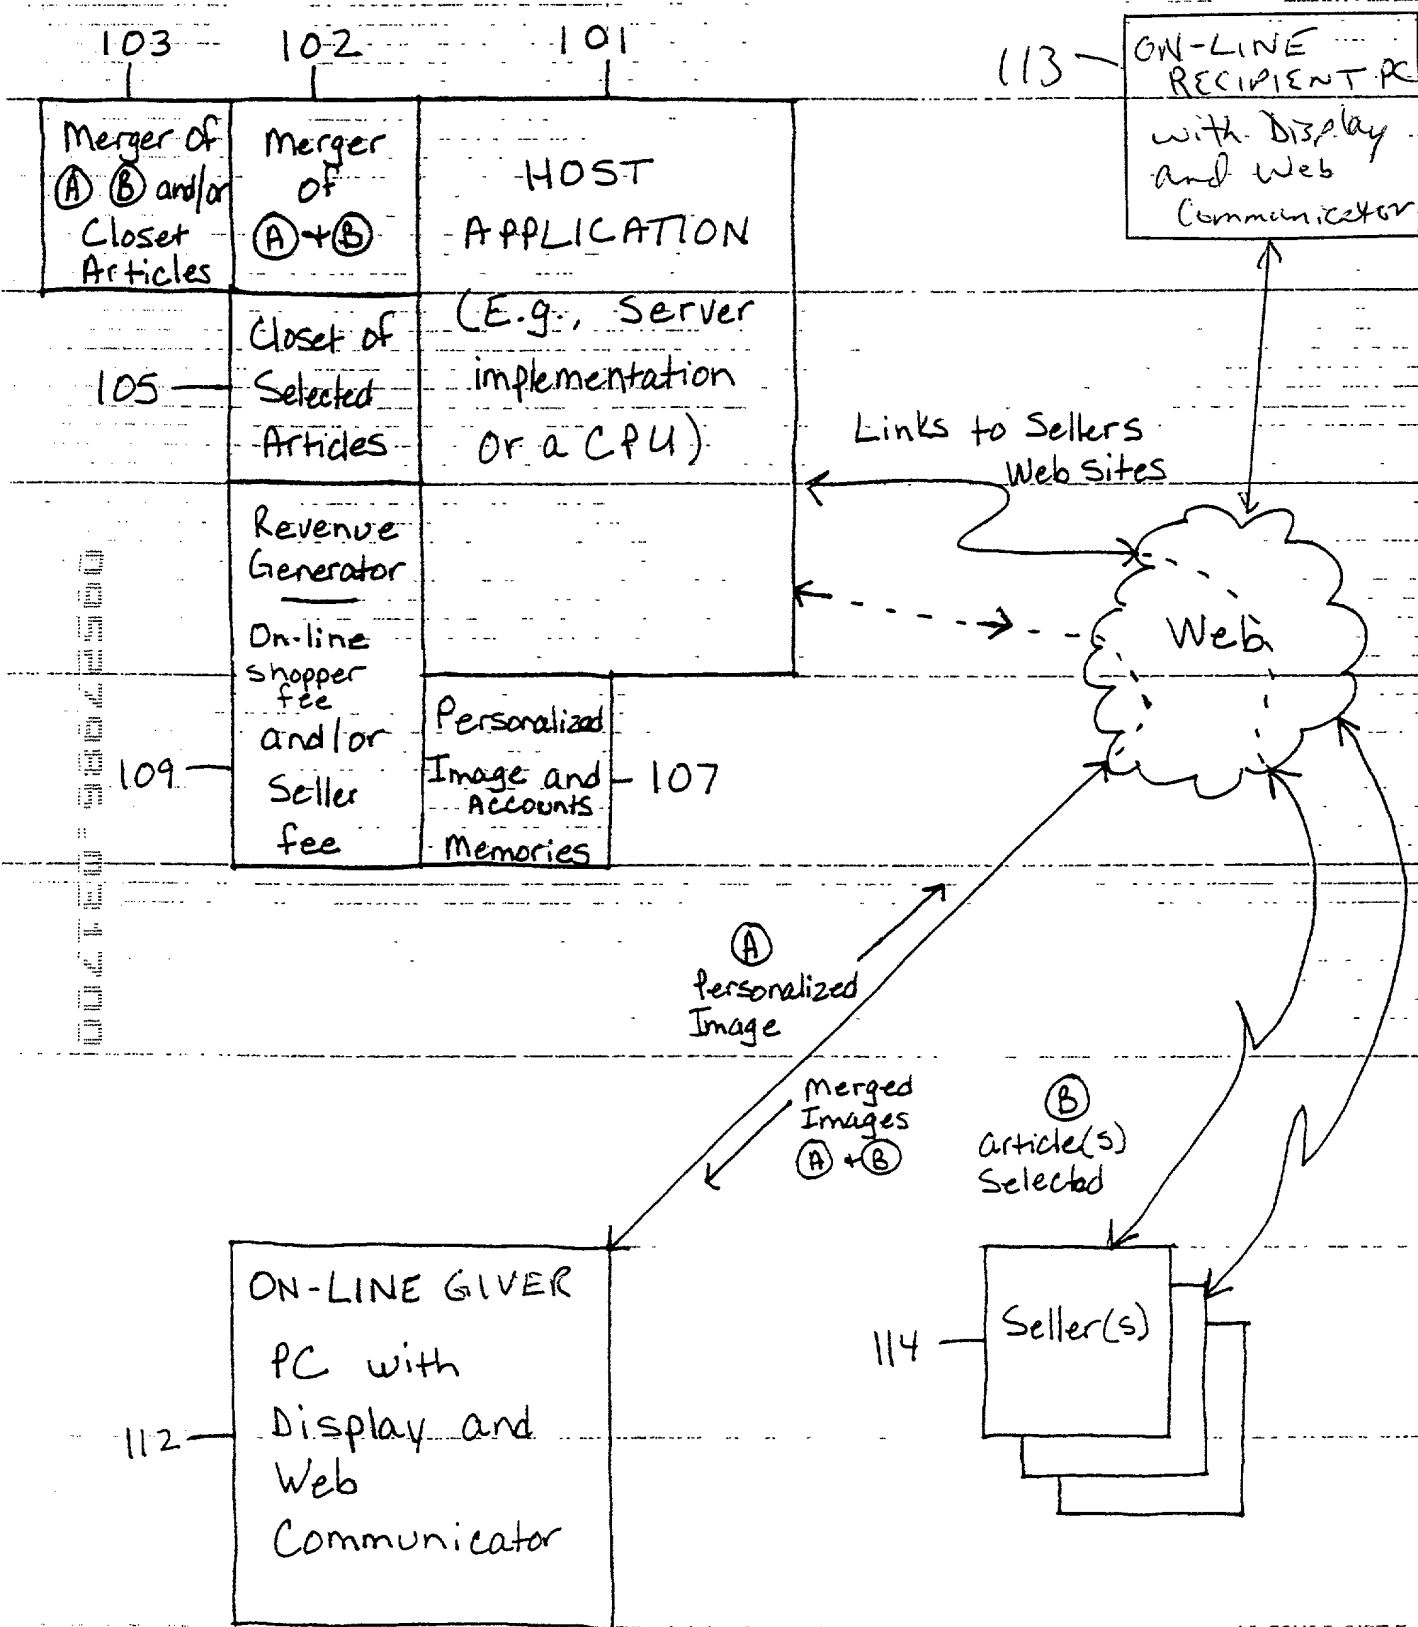 103
102
101
113
ON-LINE
RECIPIENT PC
with Display
and Web
Communicator
Merger of
Ⓐ Ⓑ and/or
Closet
Articles
Merger
of
Ⓐ+Ⓑ
HOST
APPLICATION
(E.g., Server
implementation
or a CPU)
105
Closet of
Selected
Articles
Links to Sellers
Web Sites
Revenue
Generator
On-line
shopper
fee
and/or
Seller
fee
109
Personalized
Image and
Accounts
Memories
107
Web
Ⓐ
Personalized
Image
Merged
Images
Ⓐ+Ⓑ
Ⓑ
article(s)
Selected
ON-LINE GIVER
PC with
Display and
Web
Communicator
112
Seller(s)
114